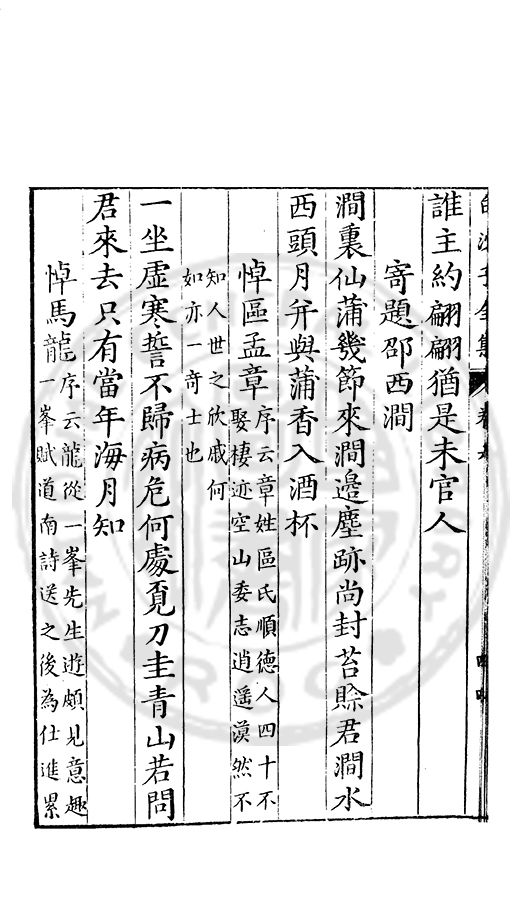 誰主約翩翩猶是未官人
寄題邵西澗
澗裏仙蒲幾節來澗邉塵跡尚封苔賒君澗水
西頭月并與蒲香入酒杯
悼區孟章
序云章姓區氏順德人四十不
娶棲迹空山委志逍遥漠然不
知人世之欣戚何
如亦一奇士也
一坐虛寒誓不歸病危何處覔刀圭青山若問
君來去只有當年海月知
悼馬龍
序云龍從一峯先生遊頗見意趣
一峯賦道南詩送之後為仕進累